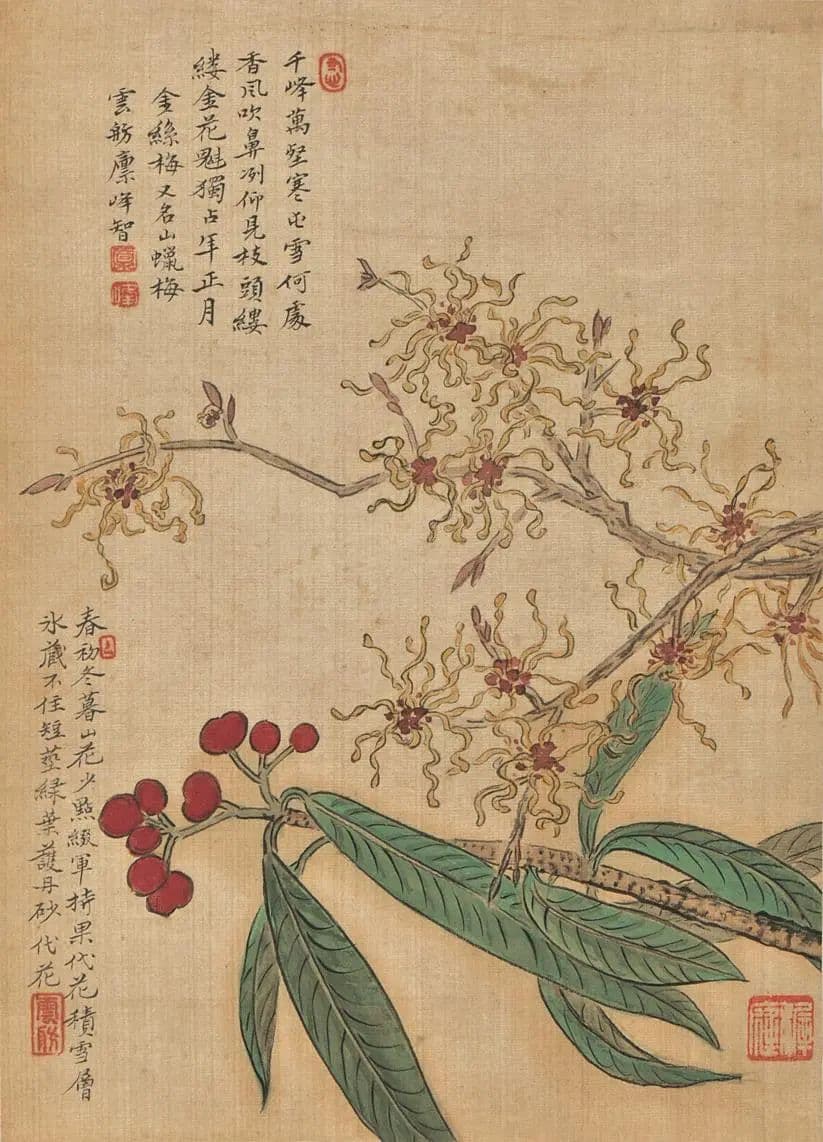 千峰萬壑寒屯雪何處
香風吹鼻冽仰見枝頭縷
縷金花魁獨占年正月
金絲梅又名山蠟梅
雲舫廩峰智
春初冬暮山花少點綴軍持果代花積雪層
氷藏不住短莖緑葉護丹砂 代花
雲舫